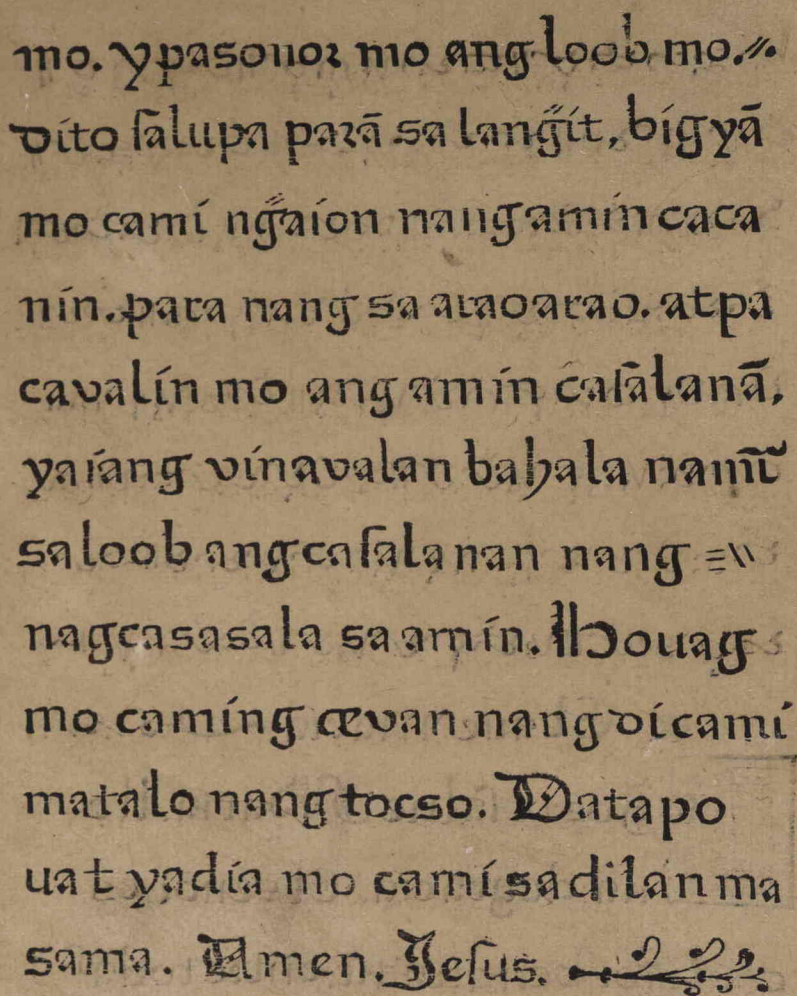 mo. ypasonor mo ang loob mo.
dito ſalupa parā sa langg̃it, bigyā
mo cami ng̃aion nang amin caca
nin. para nang sa araoarao. at pa
cavalin mo ang amin caſalanā,
yaiang vinavalan bahala namī
sa loob ang caſalanan nang
nagcasasala sa amin. Houag
mo caming œvan nang di cami
matalo nang tocso. Datapo
uat yadia mo cami sa dilan ma
sama. Amen. Jeſus.